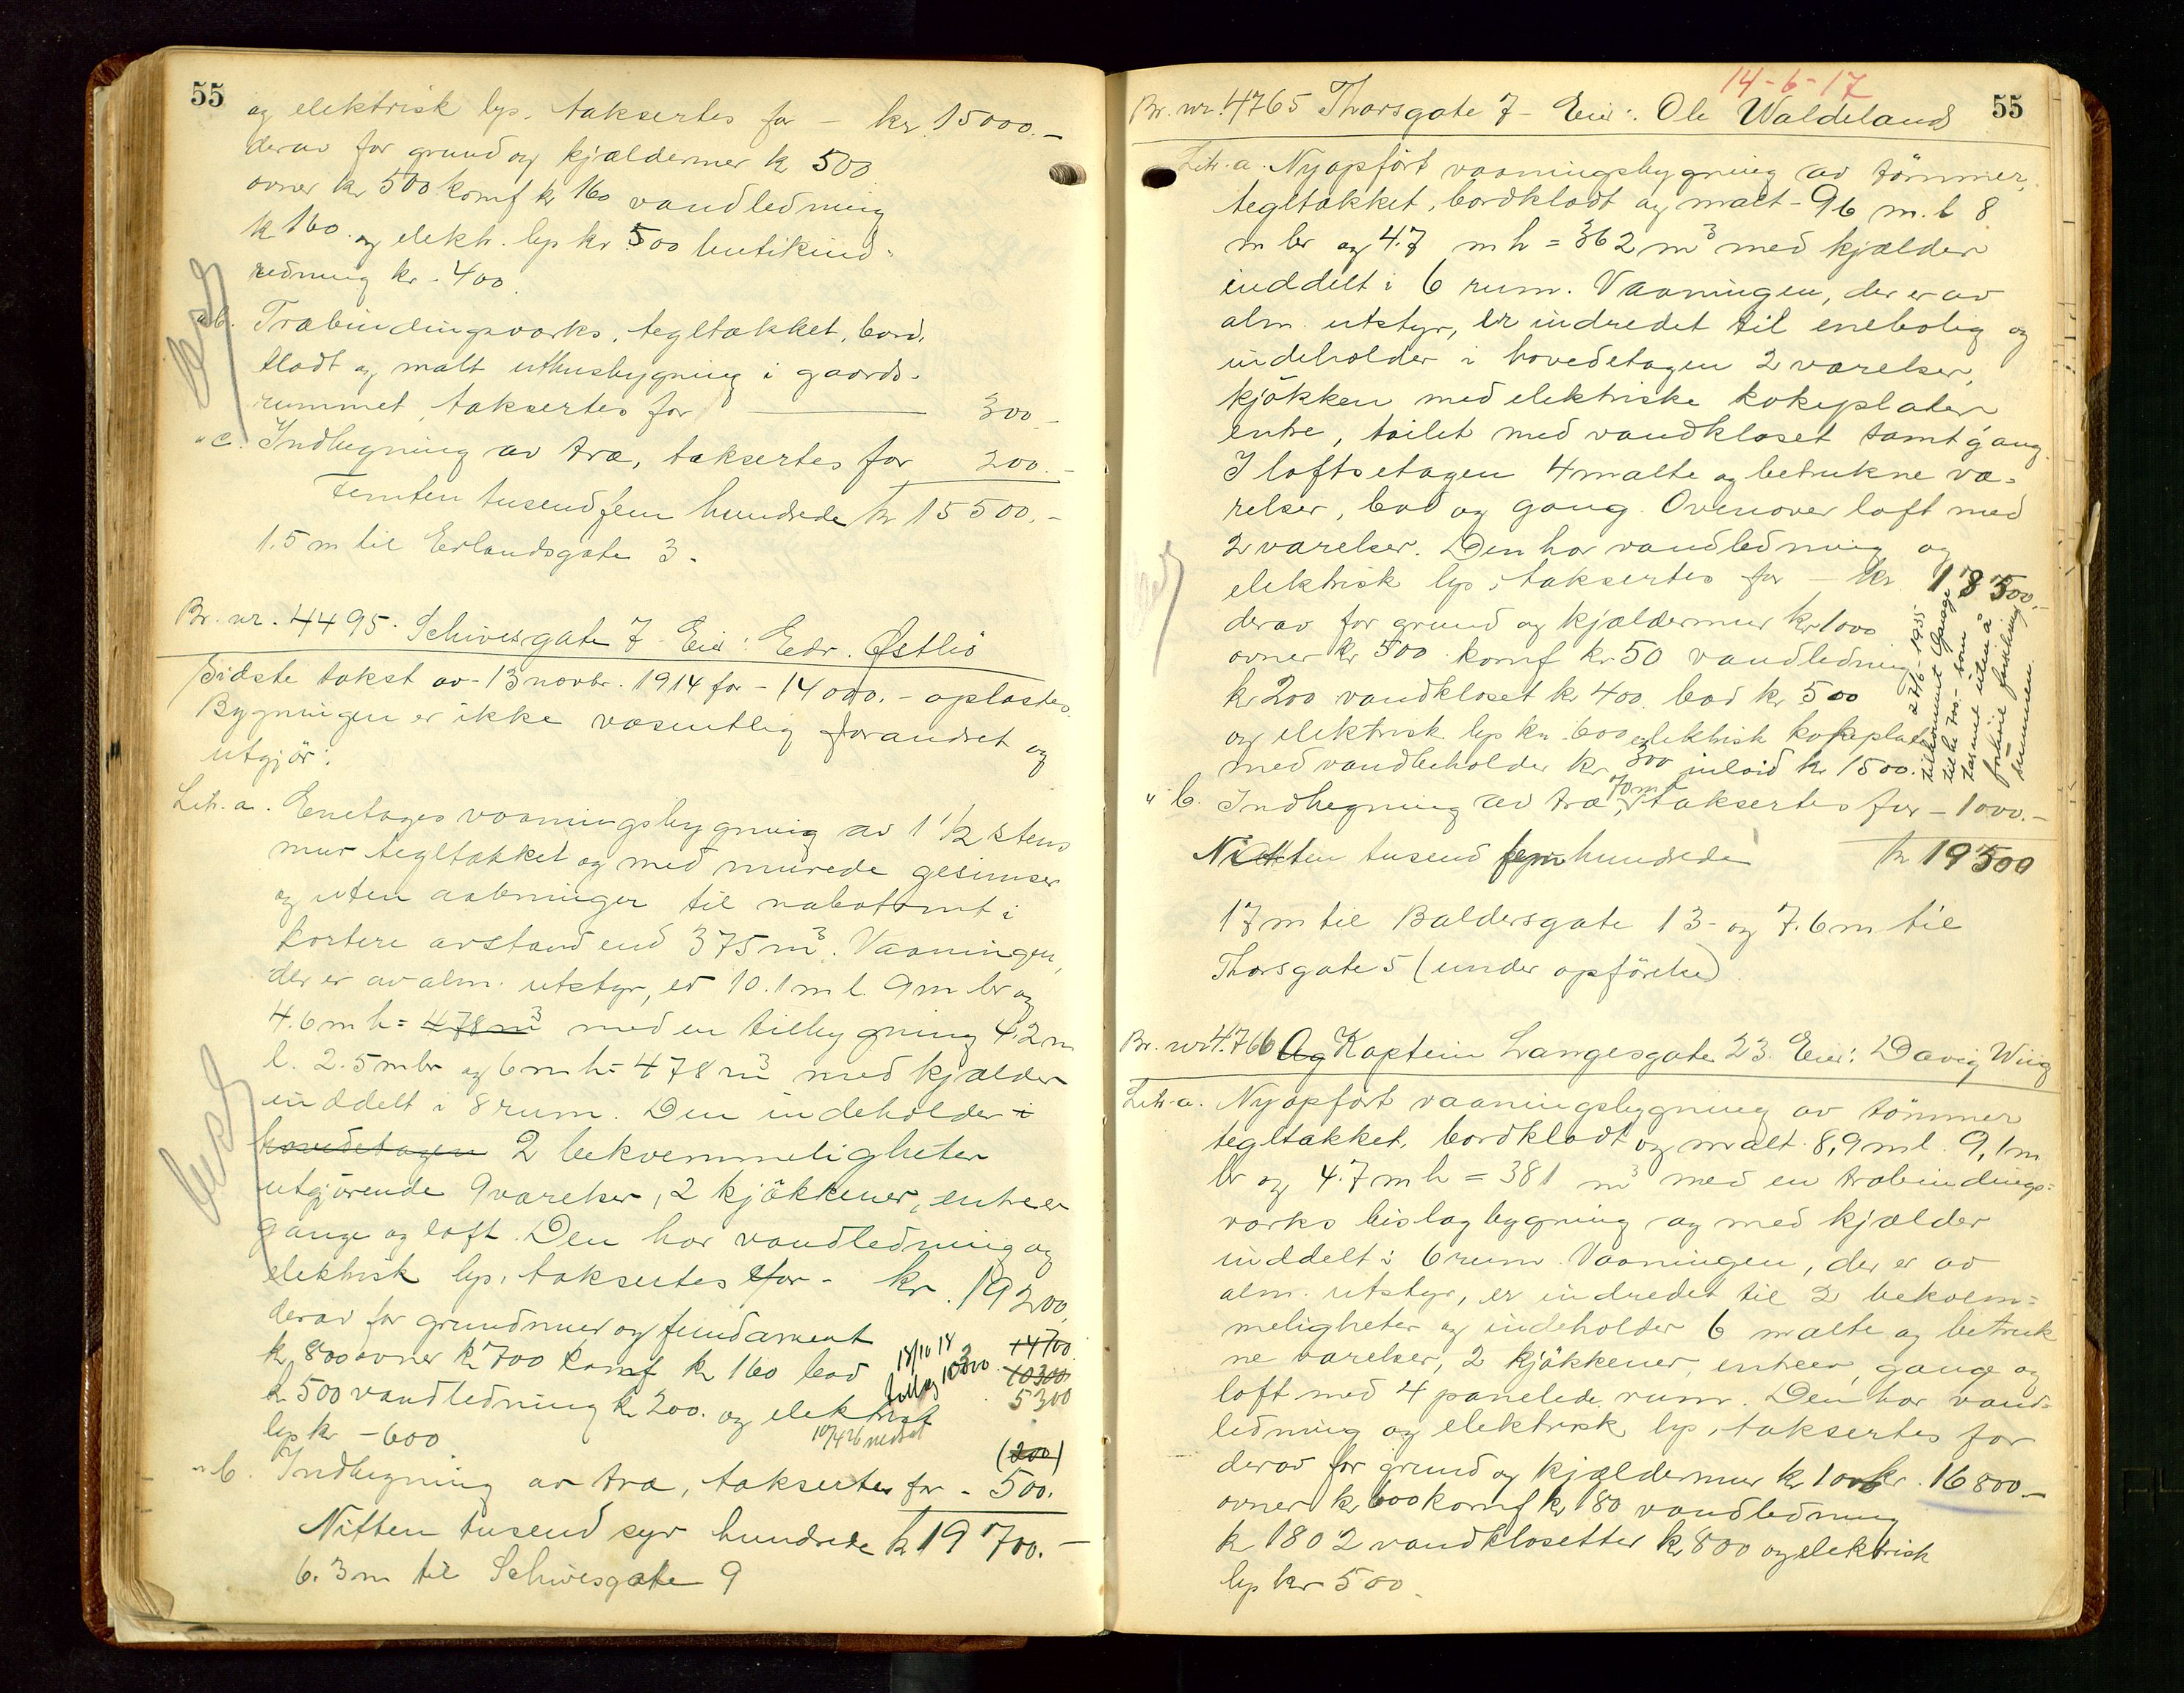 55
og elektrisk lys, taksertes for - kr 15000.-
derav for grund og kjældermur kr 500
ovner kr 500 komf kr 160 vandledning
kr 160. og elektr. lys kr 500 butikind-
redning kr - 400.
" b. Træbindingsværks, tegltækket, bord-
klædt og malt uthusbygning i gaards-
rummet, taksertes for 300.-
" c. Indhegning av træ, taksertes for 200.-
Femten tusend fem hundrede kr 15500.-
1.5 m til Erlandsgate 3.
Br. nr. 4495. Schivesgate 7 Eier: Edv. Østliö
Sidste takst av - 13 novbr. 1914 for - 14000.- oplæstes.
Bygningen er ikke væsentlig forandret og
utgjør:
Litr. a. Enetages vaaningsbygning av 1 1/2 stens
mur tegltækket og med murede gesimser
og uten aabninger til nabotomt i
kortere avstand end 375 m3. Vaaningen,
der er av alm. utstyr, er 10.1 m l. 9 m br og
4.6 m h = 478 m3 med en tilbygning 4.2 m
l. 2.5 m br og 6 m h = 478 m3 med kjælder
inddelt i 8 rum. Den indeholder i
hovedetagen 2 bekvemmeligheter
utgjørende 9 værelser, 2 kjøkkener, entreer
gange og loft. Den har vandledning og
elektrisk lys, taksertes for - kr. 19200
derav for grundmur og fundament 14700
kr 800 ovner kr 700 komf kr 160 bad 18/10 18 10300
kr 500 vandledning kr 200. og elektrisk tillæg 5300
lys kr - 600 10/4 26 nedsat (200)
" b. Indhegning av træ, taksertes for - 500.
Nitten tusend syv hundrede kr 19700.-
6.3 m til Schivesgate 9
14-6-17
55
Br. nr. 4765 Thorsgate 7 - Eier: Ole Waldeland
Litr. a. Nyopført vaaningsbygning av tømmer,
tegltækket, bordklædt og malt - 9 6 m. l 8
m br og 4.7 m h = 362 m3 med kjælder
inddelt i 6 rum. Vaaningen, der er av
alm. utstyr, er indredet til enebolig og
indeholder i hovedetagen 2 værelser,
kjøkken med elektriske kokeplater
entre, toilet med vandkloset samt gang.
I loftsetagen 4 malte og betrukne væ-
relser, bad og gang. Ovenover loft med
2 værelser. Den har vandledning og
elektrisk lys, taksertes for - kr 18500.-
derav for grund og kjældermur kr 1000
ovner kr 500 komf kr 50 vandledning
kr 200 vandkloset kr 400. bad kr 500
og elektrisk lys kr. 600 elektrisk kokeplate
med vandbeholder kr 300 inlaid kr 1500.
27/6-1955
tilkommet Garage
til kr 700.- som
taxeret uten å
forhøie forsikrings
summen.
" b. Indhegning av træ, 70 m taksertes for - 1000.-
Nitten tusend fem hundrede kr 19500
17 m til Baldersgate 13 - og 7.6 m til
Thorsgate 5 (under opførelse).
Br. nr 4766 Og Kaptein Langesgate 23. Eier: Davig Wiig
Litr. a. Nyopført vaaningsbygning av tømmer
tegltækket, bordklædt og malt 8,9 m l. 9,1 m
br og 4.7 m h = 381 m3 med en træbindings-
værks bislagbygning og med kjælder
inddelt i 6 rum. Vaaningen, der er av
alm. utstyr, er indredet til 2 bekvem-
meligheter og indeholder 6 malte og betruk
ne værelser, 2 kjøkkener, entreer, gange og
loft med 4 panelede rum. Den har vand-
ledning og elektrisk lys, taksertes for
derav for grund og kjældermur kr 1000 kr. 16800.-
ovner kr 600 komf kr 180 vandledning
kr 180 2 vandklosetter kr 800 og elektrisk
lys kr 500.